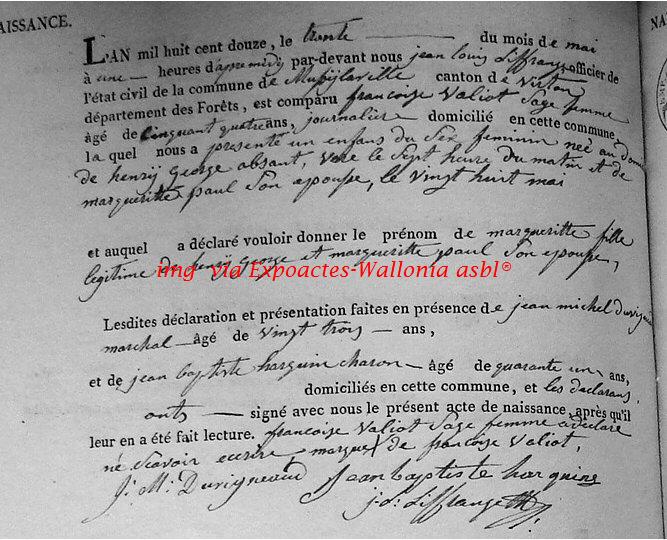 AISSANCE.
NA
L'AN mil huit cent douze, le trente du mois de mai
à une heures d'apremidy par-devant nous jean louis Liffrange officier de
l'état civil de la commune de Mussylaville canton de Virton
département des Forêts, est comparu francoise Valiot Sage femme
âgé de Cinquant quatre ans, journaliere domicilié en cette commune,
la quel nous a presenté un enfans du Sex feminin neé au
de henrÿ george absant, vere le Sept heure du matin et de
margueritte paul Son epouse, le vingt huit mai
et auquel a déclaré vouloir donner le prénom de margueritte fille
legitime de henrÿ george et margueritte paul Son epouse,
img via Expoactes-Wallonia asbl®
Lesdites déclaration et présentation faites en présence de jean michel
marchal âgé de vingt trois ans,
et de jean baptiste harquin charon âgé de quarante un ans,
domiciliés en cette commune, et les declarans
onts signé avec nous le présent acte de naissance, après qu'il
leur en a été fait lecture. francoise Valiot Sage femme a declare
né Scavoir ecrire, marque de francoise Valiot,
J: M: Duvigneaud Jean baptiste harquins
j: L: Liffrange